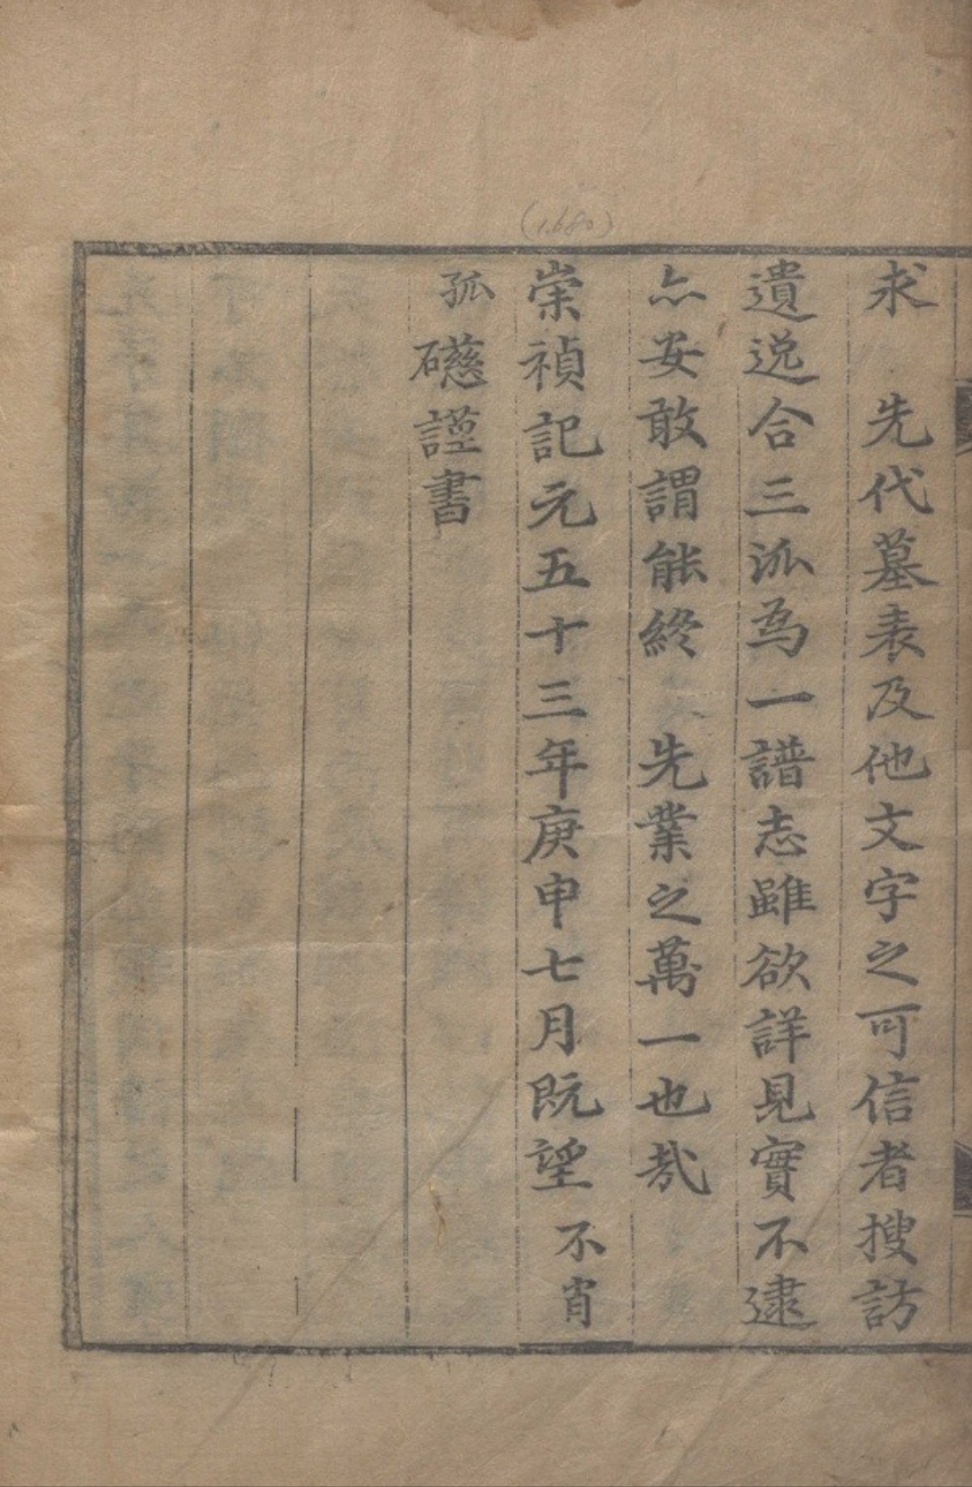 (1680)
求　先代墓表及他文字之可信者搜訪
遺逸合三派為一譜志雖欲詳見實不逮
亦安敢謂能終　先業之萬一也哉
崇禎記元五十三年庚申七月既望 不肖
孤礠謹書